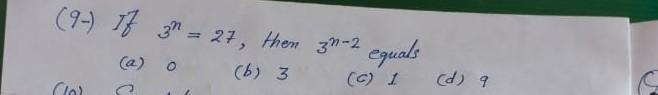 (9-) If 3ⁿ = 27, then 3ⁿ⁻² equals
(a) 0 (b) 3 (c) 1 (d) 9
(10)